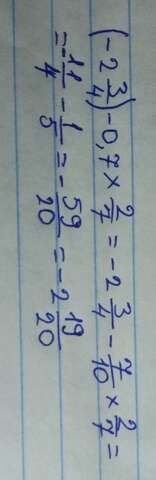 (-2 3/4) - 0,7 × 2/7 = -2 3/4 - 7/10 × 2/7 =
= -11/4 - 1/5 = -59/20 = -2 19/20